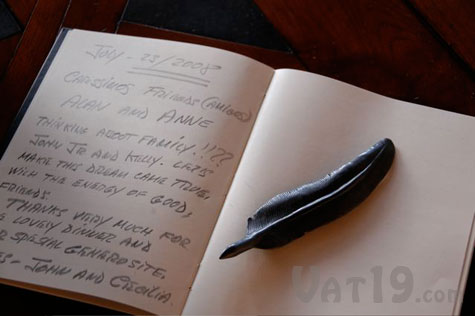 JULY - 25/2008
CARISSIMOS FRIENDS (AMIGOS)
ALAN AND ANNE
THINKING ABOUT FAMILY.!!??
JOHN JR AND KELLY. LETS
MAKE THIS DREAM CAME TRUE,
WITH THE ENERGY OF GOOD,
FRIENDS.
THANKS VERY MUCH FOR
LOVELY DINNER AND
SPESIAL GENEROSITE,
JOHN AND CECILIA
VAT19.com